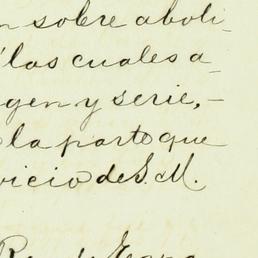 n sobre aboli-
las cuales a-
gen y serie,-
la parte que
vicio de S. M.